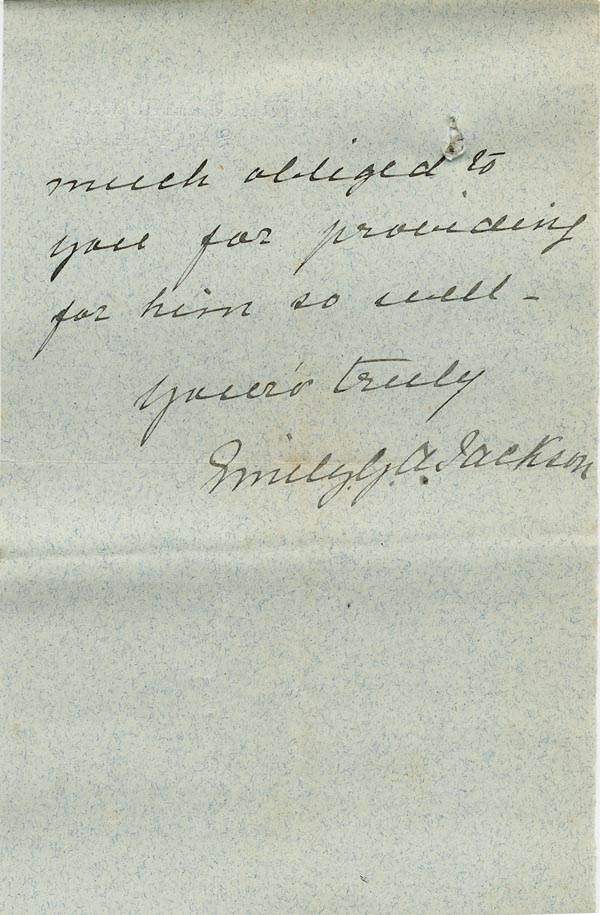 much obliged to
you for providing
for him so well -
Your's truly
Emily G. A. Jackson